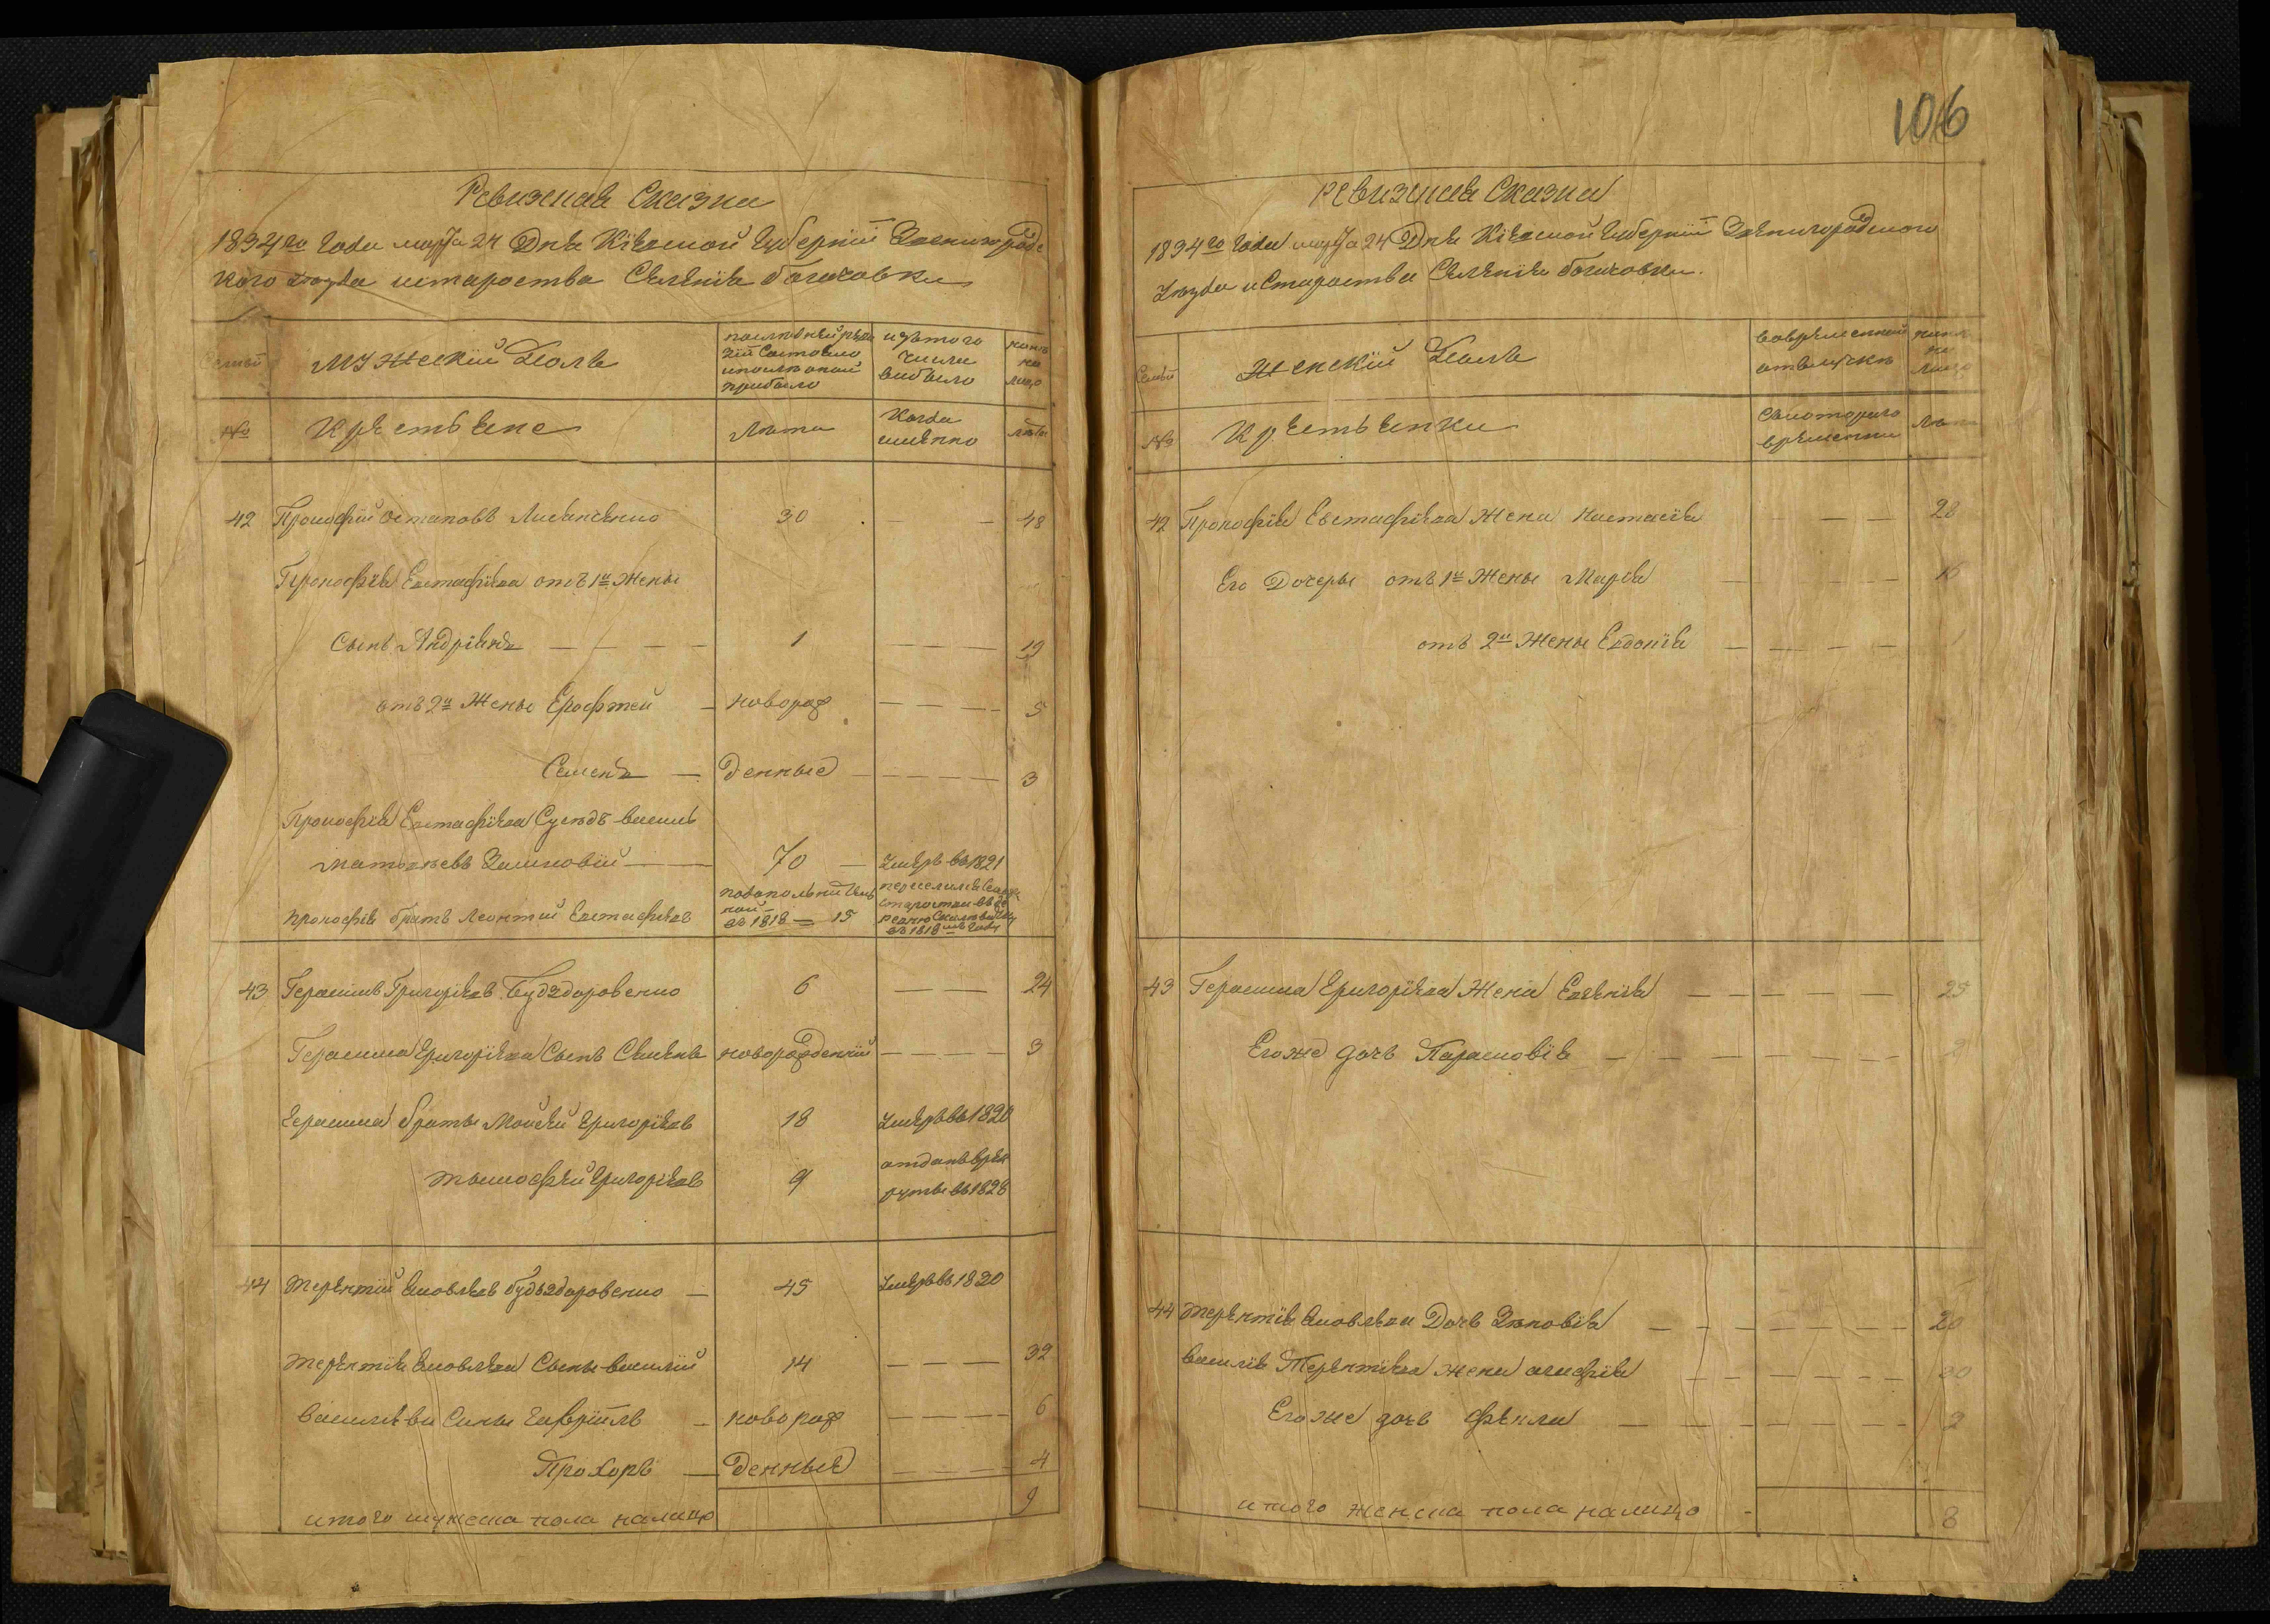 106
Ревизская Сказка
1834го Года марта 24 Дня Кіевской Губерніи Звенигородс
кого уезда истароства Селенія богачовки
Семьи
Мужескій Полъ
последней реви
зіи Состояло
ипослѣ оной
прибыло
изътого
Числа
выбыло
нынѣ
на
лицо
№
Крестьяне
Лѣта
Когда
именно
лѣта
42 Прокофій Остаповъ Лисаненко 30 — — 48
Прокофія Евстафіева отъ 1й Жены
Сынъ Андріянъ — — — — 1 — — — — 19
отъ 2й Жены Ерофтей — новорож — — — — 5
Семенъ — Денные — — — — — 3
Прокофія Евстафіева Суседъ василь
матвѣевъ 70 — Умеръ въ 1821
прокофія братъ Леонтій Евстафіевъ
въ 1818 — 15
въ 1818мъ Году
43 Герасимъ Григоріевъ Будздоровенко 6 — — — 24
Герасима Григоріева Сынъ Семенъ новорожденній — — — — 3
Герасима братья Мойсей Григоріевъ 18 Умеръ въ 1820
тимофей Григоріевъ 9 отданъ врек
руты въ 1828
44 терентій Яковлевъ будьздоровенко — 45 Умеръ въ 1820
терентія Яковлева Сынъ василій 14 — — — 32
Василева Сины Гавріилъ — новорож — — — — 6
Прохоръ — Денные — — — — 4
итого мужеска пола налицо 9
ревизская Сказка
1834го Года марта 24 Дня Кіевской Губерніи Звенигородского
Уезда и Староства Селенія богачовки.
Семьи
Женскій Полъ
вовременной
отлучкѣ
нынѣ
на
лицо
№
Крестьянки
Скотораго
времени
42 Прокофія Евстафіева Жена Настасія — — — 28
Его Дочеры отъ 1й Жены Марія — — — — 16
отъ 2й Жены Евдокія — — — — 1
43 Герасима Григоріева Жена Евгенія — — — — — — 25
Егоже дочъ Парасковія — — — — — — — 2
44 терентія Яковлева Дочъ Зѣновія — — — — — — — 20
василія Терентіева жена агафія — — — — — — — 30
Егоже дочъ фекла — — — — — — — 2
итого женска пола налицо - 8